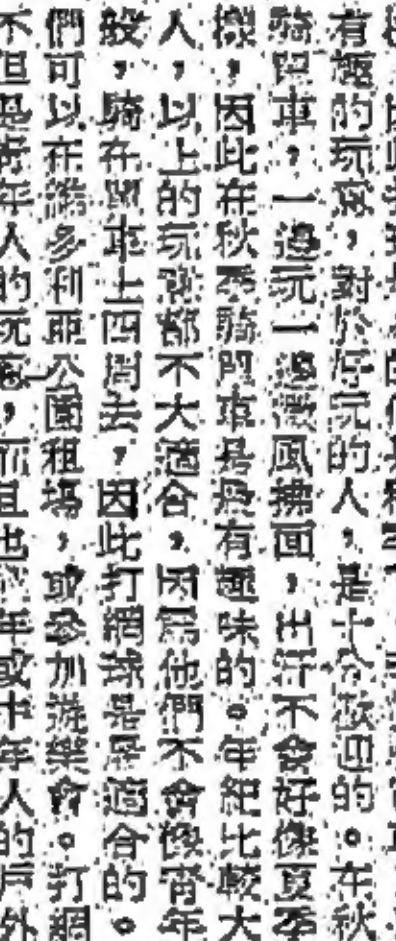 有趣的玩意，對於好玩的人，是十分歡迎的。在秋
騎單車，一邊玩一邊微風拂面，出汗不會好像夏季
樣，因此在秋季騎單車是最有趣味的。年紀比較大
人，以上的玩意都不大適合，因為他們不會像青年
般，騎在單車上四周去，因此打網球是最適合的。
們可以在維多利亞公園租場，或參加遊樂會。打網
不但是青年人的玩意，而且也是年或中年人的戶外